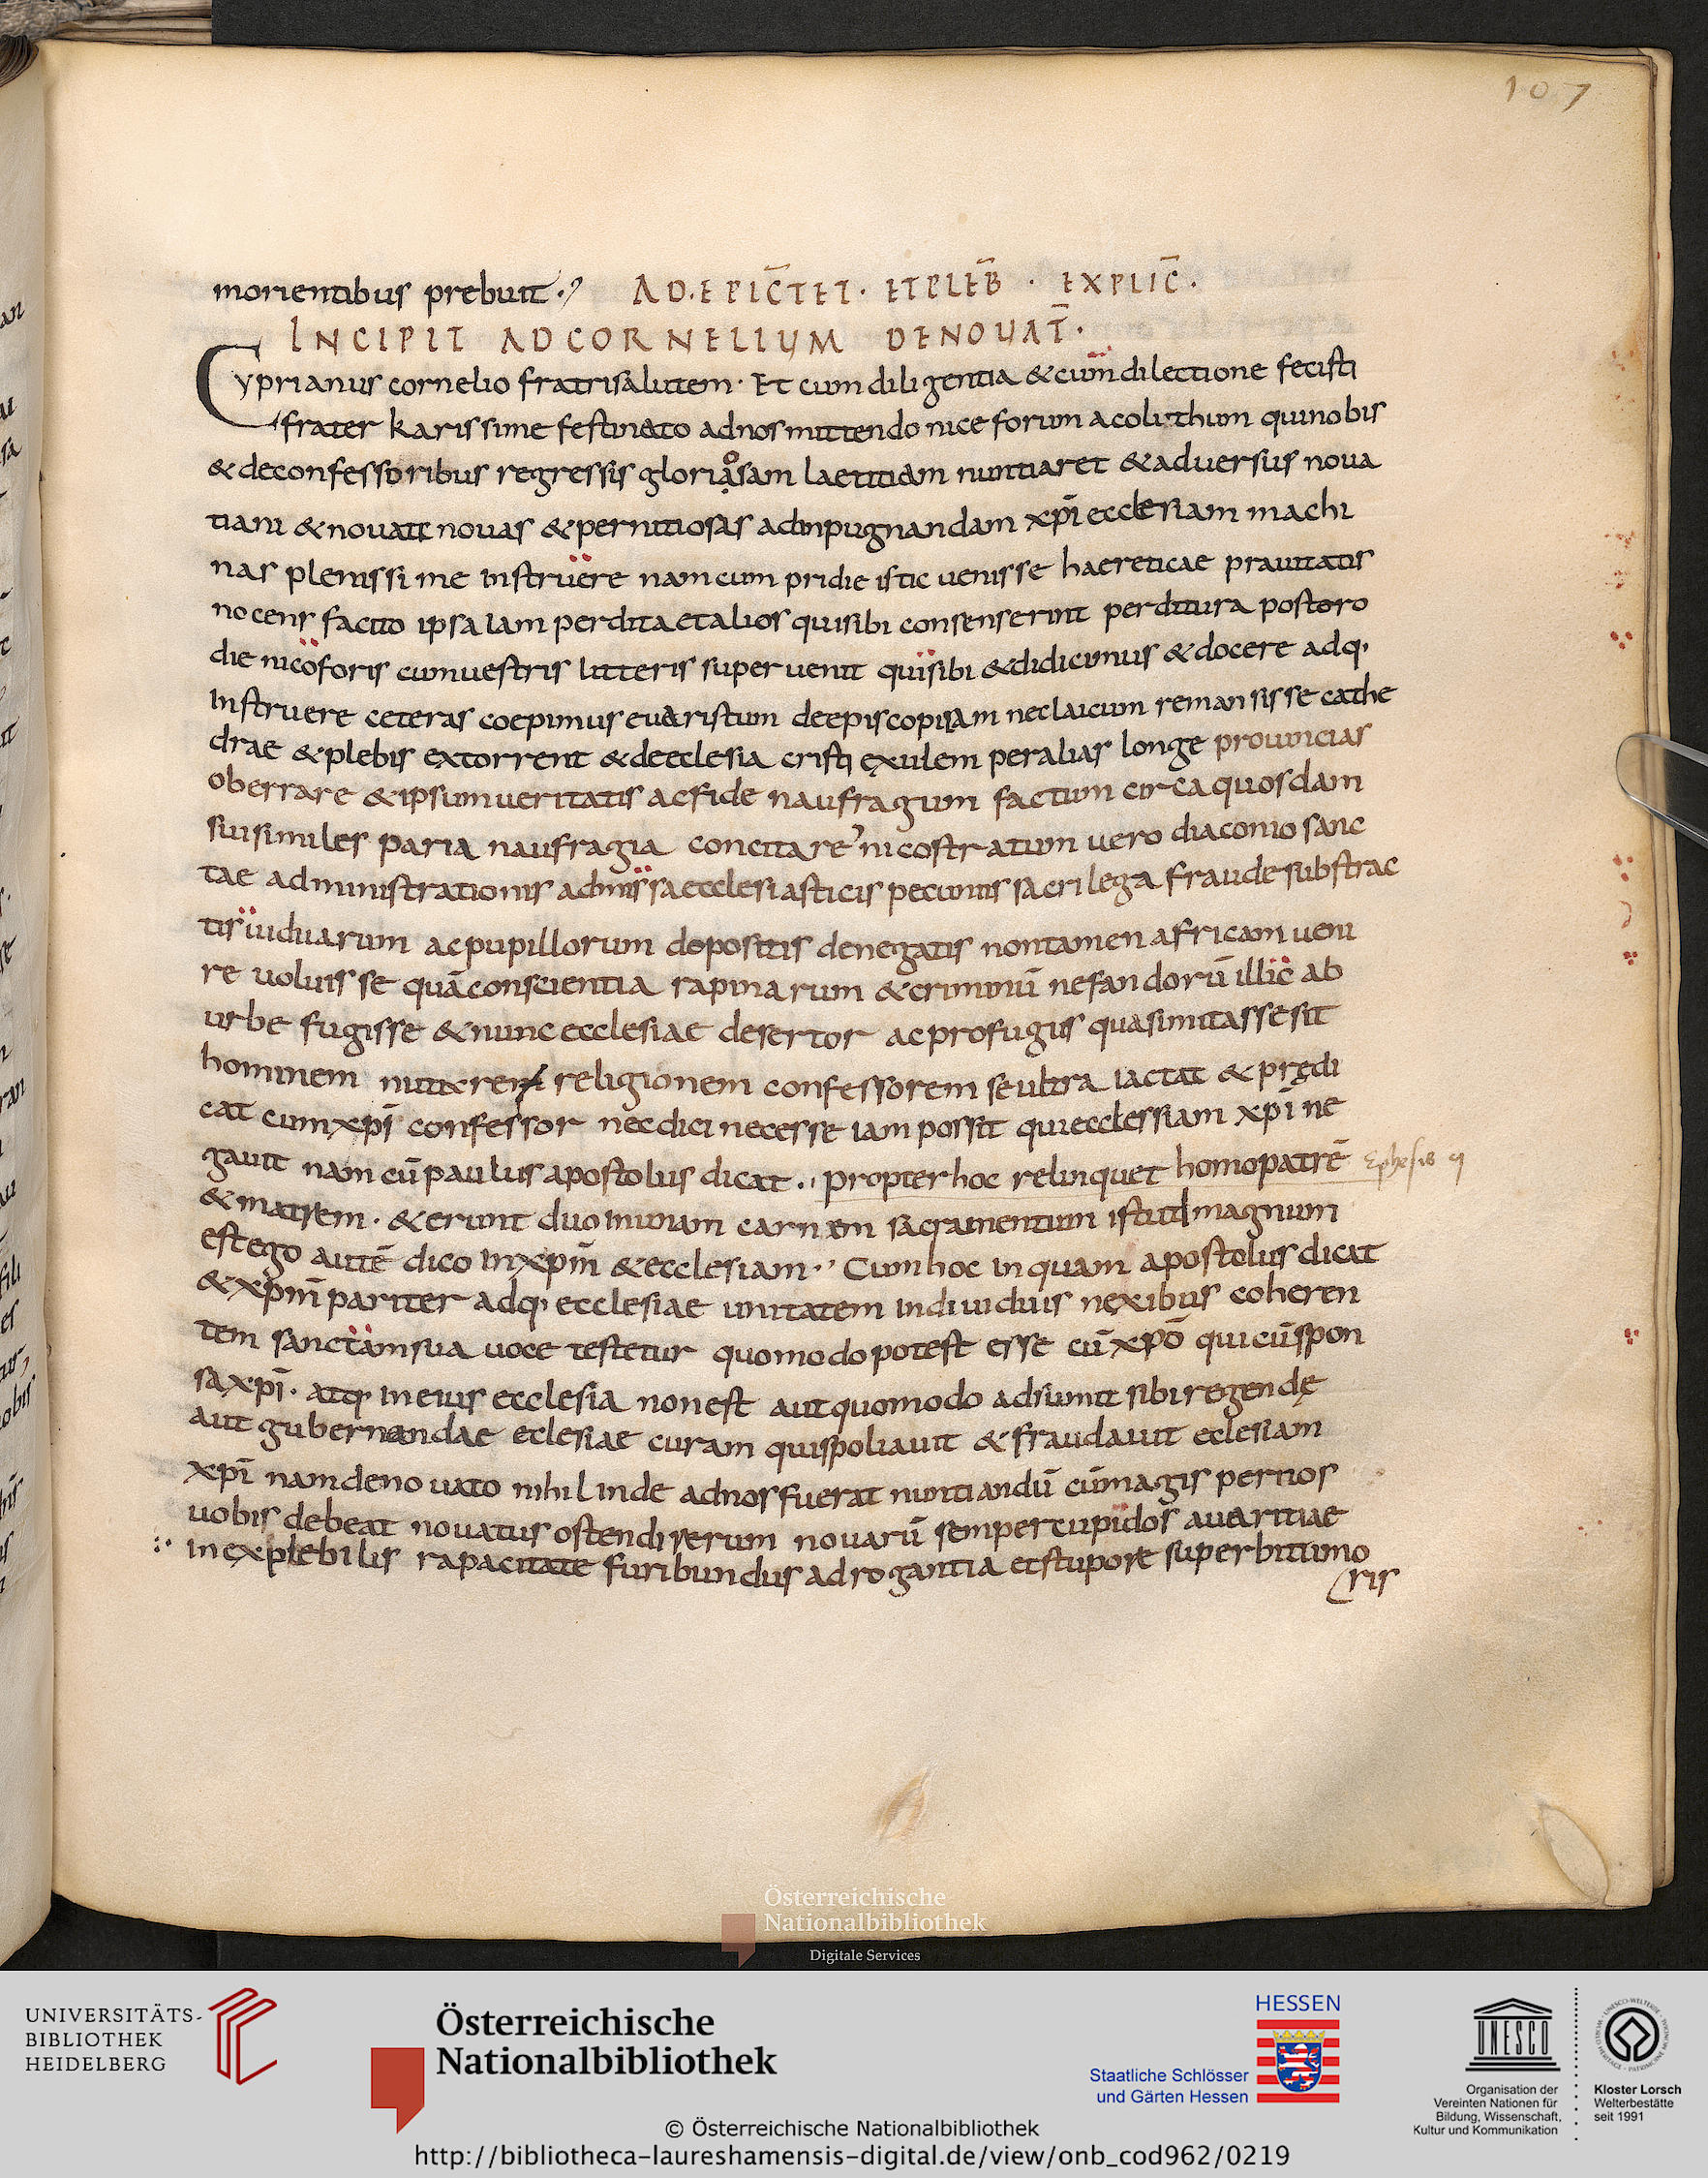 107
morientibus prebuit
AD.EPIC̄TET. ET PLEB̄ · EXPLIC̄.
INCIPIT AD CORNELIUM DE NOUAT̄.
Cyprianus cornelio fratri salutem. Et cum diligentia & cum dilectione fecisti
frater karissime festinato ad nos mittendo niceforum acoluthum qui nobis
& de confessoribus regressis gloriaosam laetitiam nuntiaret & adversus nova
tiani & novati novas & pernitiosas ad inpugnandam xp̄i ecclesiam machi
nas plenissime instruere nam cum pridie istic venisse haereticae pravitatis
nocens factio ipsa iam perdita et alios qui sibi consenserint perditura postoro
die nicoforis cum vestris litteris supervenit qui sibi & didicimus & docere adq,
instruere ceteras coepimus evaristum de episcopi iam nec laicum remansisse cathe
drae & plebis extorrent & de ecclesia cristi exulem per alias longe provincias
oberrare & ipsum veritatis ac fide naufragum factum circa quosdam
sui similes paria naufragia concitare nicostratum vero diaconio sanc
tae administrationis admissa ecclesiasticis pecuniis sacrilega fraude substrac
tis viduarum ac pupillorum depositis denegatis non tamen africam veni
re voluisse quā conscientia rapinarum & criminū nefandorū illic ab
urbe fugisse & nunc ecclesiae desertor ac profugus quasi mutasse sit
hominem religionem confessorem se ultra iactat & prędi
cat cum xp̄i confessor nec dici necesse iam possit qui ecclessiam xp̄i ne
gavit nam cū paulus apostolus dicat. propter hoc relinquet homo patrē Ephesis
& matrem. & erunt duo in unam carnem sacramentum istud magnum
est ego autē dico in xpm̄ & ecclesiam. Cum hoc inquam apostolus dicat
& xpm̄ pariter adq, ecclesiae unitatem individuis nexibus coheren
tem sanctam sua voce testetur quomodo potest esse cū xpō qui cū spon
sa xp̄i. atq, in eius ecclesia non est aut quomodo adsumit sibi regendę
aut gubernandae eclesiae curam qui spoliavit & fraudavit eclesiam
xp̄i nam de novato nihil inde ad nos fuerat nuntiandū cū magis per nos
vobis debeat novatus ostendi rerum novarū semper cupidos avaritiae
inexplebilis rapacitate furibundus adrogantia et stupore superbi tumo
ris
Österreichische
Nationalbibliothek
Digitale Services
UNIVERSITÄTS-
BIBLIOTHEK
HEIDELBERG
Österreichische
Nationalbibliothek
HESSEN
Staatliche Schlösser
und Gärten Hessen
UNESCO
Organisation der
Vereinten Nationen für
Bildung, Wissenschaft,
Kultur und Kommunikation
Kloster Lorsch
Welterbestätte
seit 1991
© Österreichische Nationalbibliothek
http://bibliotheca-laureshamensis-digital.de/view/onb_cod962/0219